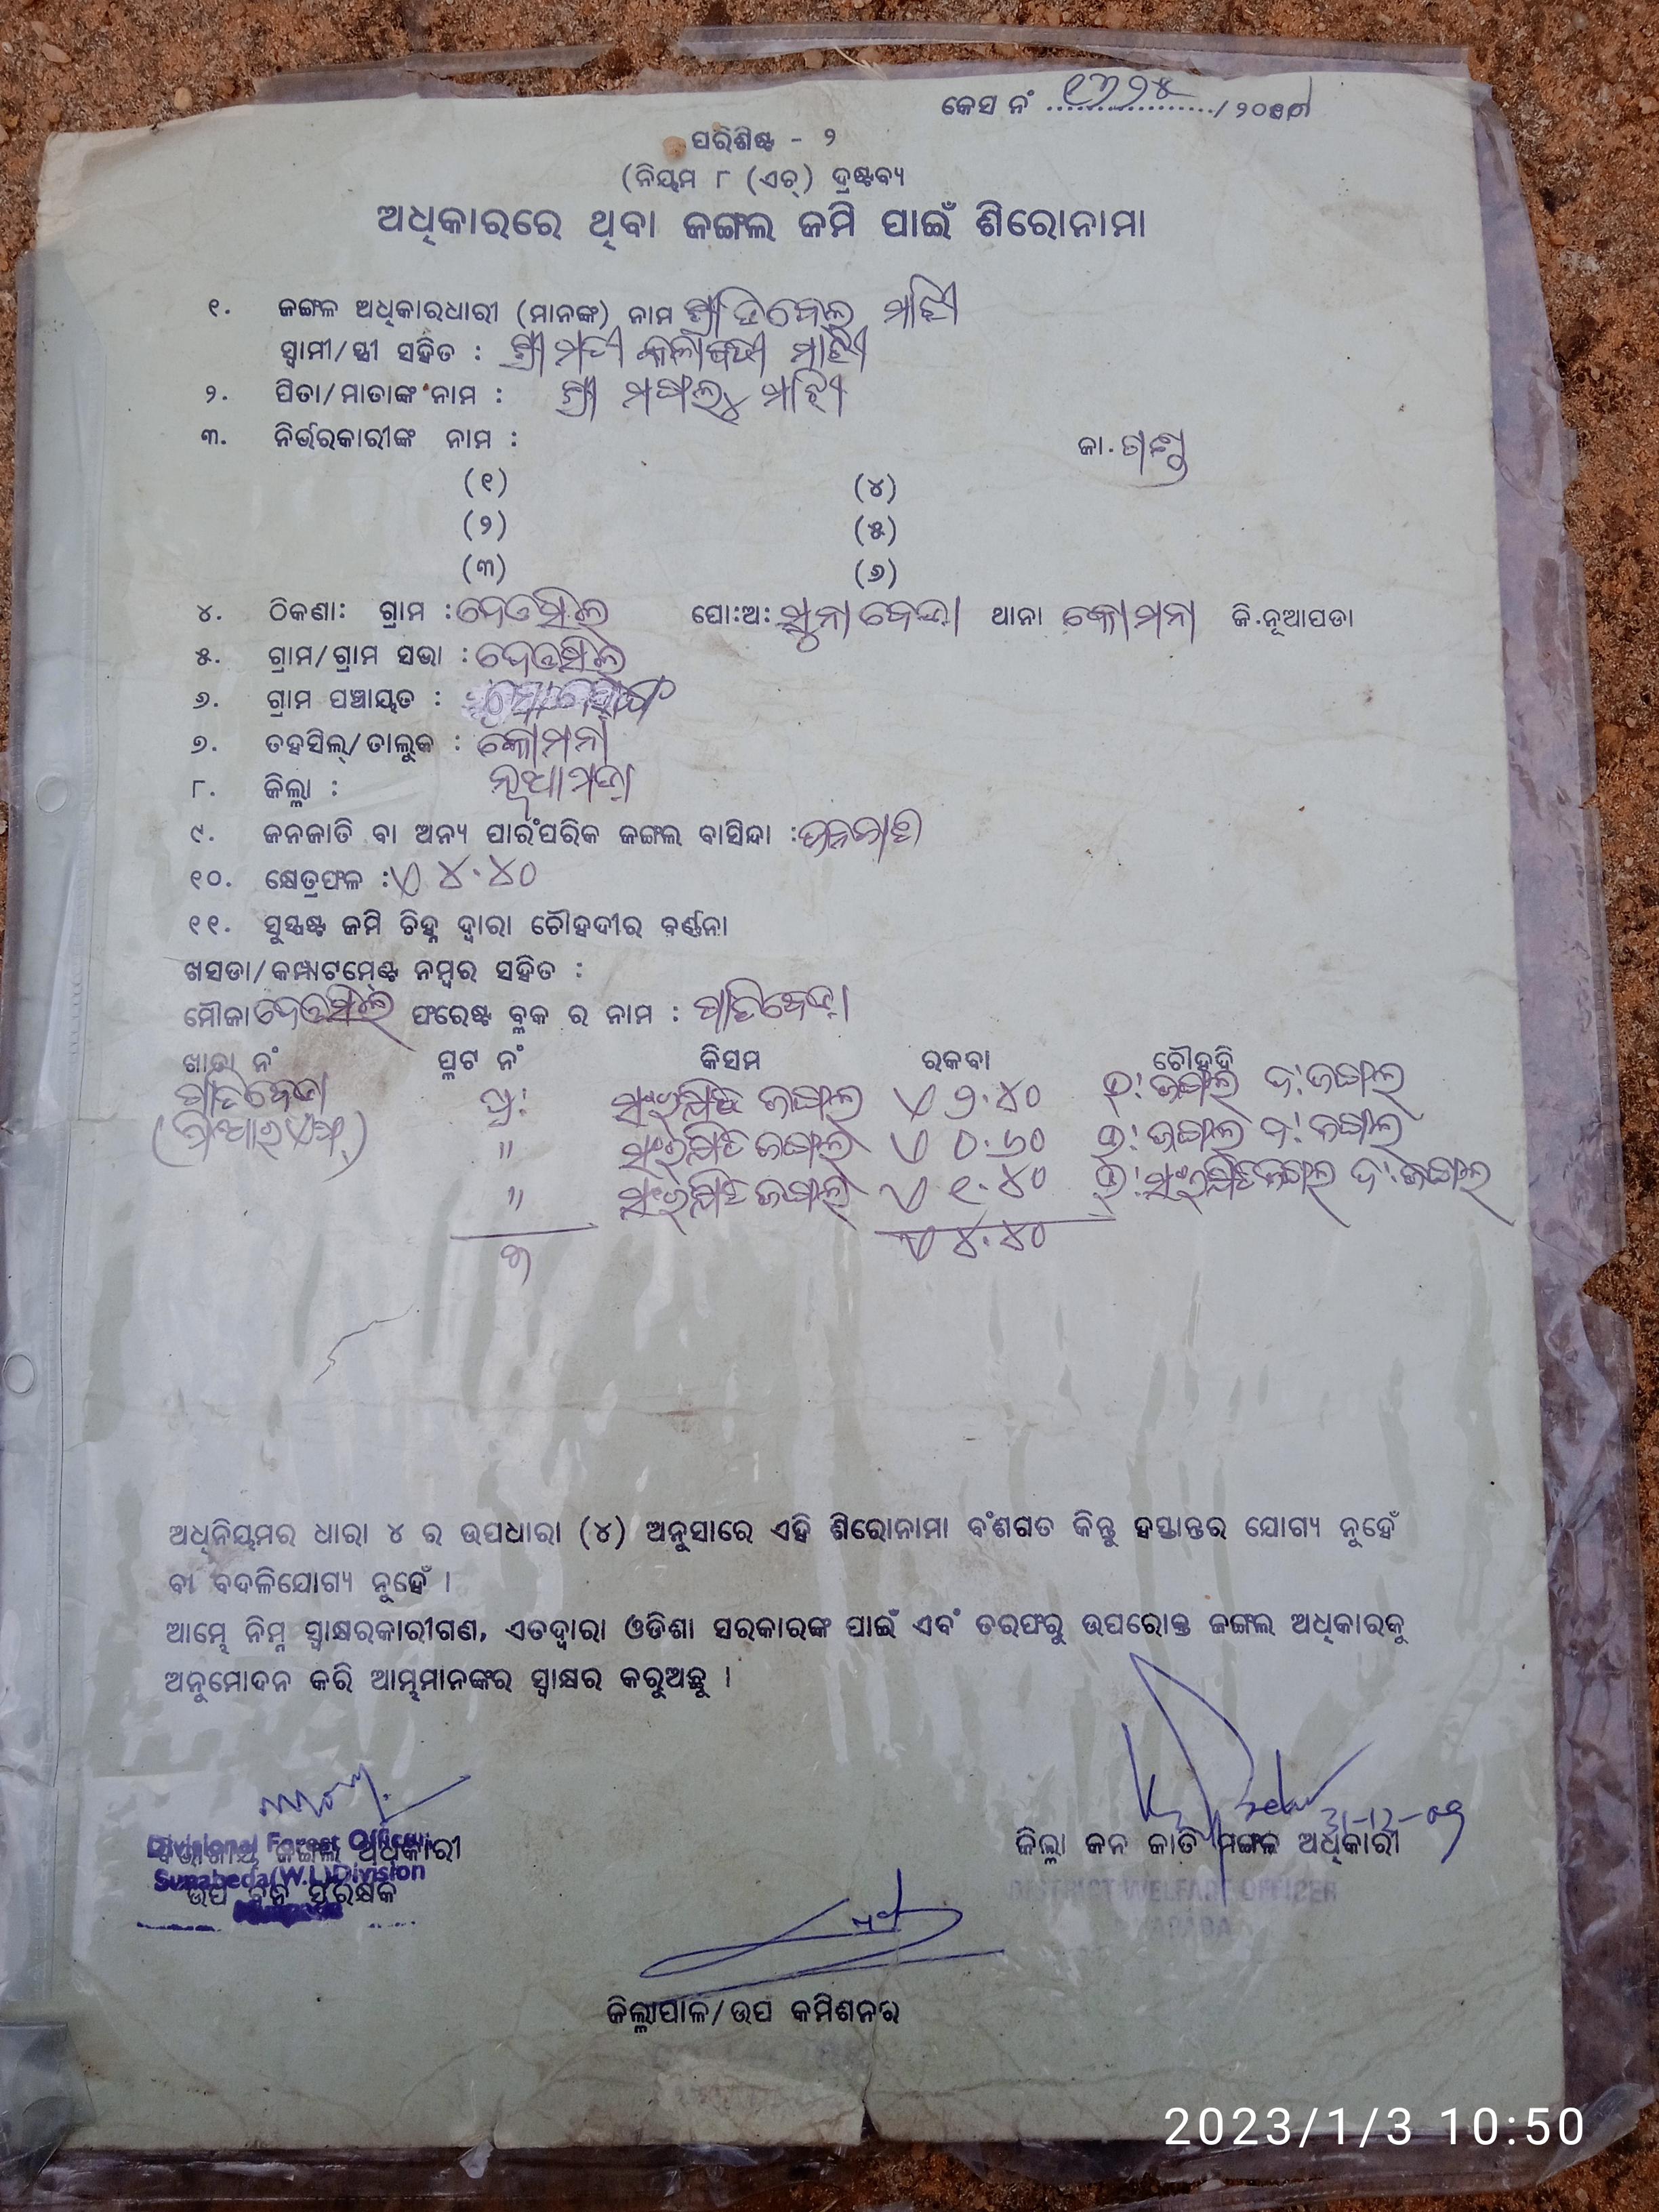 କେସ ନଂ ୧୩୨୫ / ୨୦
ପରିଶିଷ୍ଟ - ୨
(ନିୟମ ୮ (ଏଚ୍) ଦ୍ରଷ୍ଟବ୍ୟ
ଅଧିକାରରେ ଥିବା ଜଙ୍ଗଲ ଜମି ପାଇଁ ଶିରୋନାମା
୧. ଜଙ୍ଗଳ ଅଧିକାରଧାରୀ (ମାନଙ୍କ) ନାମ ଶ୍ରୀ ମାଝି
ସ୍ୱାମୀ/ସ୍ତ୍ରୀ ସହିତ : ଶ୍ରୀମତୀ ମାଝି
୨. ପିତା/ମାତାଙ୍କ ନାମ : ଶ୍ରୀ ମଙ୍ଗଲୁ ମାଝି
୩. ନିର୍ଭରକାରୀଙ୍କ ନାମ : ଜା.
(୧) (୪)
(୨) (୫)
(୩) (୬)
୪. ଠିକଣା: ଗ୍ରାମ : ଦେଓସିଲ ପୋ:ଅ: ସୁନାବେଡା ଥାନା କୋମନା ଜି.ନୂଆପଡା
୫. ଗ୍ରାମ/ଗ୍ରାମ ସଭା : ଦେଓସିଲ
୬. ଗ୍ରାମ ପଞ୍ଚାୟତ :
୭. ତହସିଲ୍/ତାଲୁକ : କୋମନା
୮. ଜିଲ୍ଲା : ନୂଆପଡା
୯. ଜନଜାତି ବା ଅନ୍ୟ ପାରଂପରିକ ଜଙ୍ଗଲ ବାସିନ୍ଦା : ଜନଜାତି
୧୦. କ୍ଷେତ୍ରଫଳ : ୪.୪୦
୧୧. ସୁସ୍ପଷ୍ଟ ଜମି ଚିହ୍ନ ଦ୍ୱାରା ଚୌହଦୀର ବର୍ଣ୍ଣନା
ଖସଡା/କମ୍ପାଟମେଣ୍ଟ ନମ୍ବର ସହିତ :
ମୌଜା ଦେଓସିଲ ଫରେଷ୍ଟ ବ୍ଳକ ର ନାମ : ପାଟବେଡା
ଖାତା ନଂ ପ୍ଳଟ ନଂ କିସମ ରକବା ଚୌହଦି
ସଂରକ୍ଷିତ ଜଙ୍ଗଲ ୨.୪୦ ଉ: ଜଙ୍ଗଲ ଦ: ଜଙ୍ଗଲ
" ସଂରକ୍ଷିତ ଜଙ୍ଗଲ ୦.୬୦ ଉ: ଜଙ୍ଗଲ ଦ: ଜଙ୍ଗଲ
" ସଂରକ୍ଷିତ ଜଙ୍ଗଲ ୧.୪୦ ଉ: ସଂରକ୍ଷିତ ଜଙ୍ଗଲ ଦ: ଜଙ୍ଗଲ
୩ ୪.୪୦
ଅଧିନିୟମର ଧାରା ୪ ର ଉପଧାରା (୪) ଅନୁସାରେ ଏହି ଶିରୋନାମା ବଂଶଗତ କିନ୍ତୁ ହସ୍ତାନ୍ତର ଯୋଗ୍ୟ ନୁହେଁ
ବା ବଦଳିଯୋଗ୍ୟ ନୁହେଁ ।
ଆମ୍ଭେ ନିମ୍ନ ସ୍ୱାକ୍ଷରକାରୀଗଣ, ଏତଦ୍ୱାରା ଓଡିଶା ସରକାରଙ୍କ ପାଇଁ ଏବଂ ତରଫରୁ ଉପରୋକ୍ତ ଜଙ୍ଗଲ ଅଧିକାରକୁ
ଅନୁମୋଦନ କରି ଆମ୍ଭମାନଙ୍କର ସ୍ୱାକ୍ଷର କରୁଅଛୁ ।
31-12-09
ବିଭାଗୀୟ ଜଙ୍ଗଲ ଅଧିକାରୀ
Divisional Forest Officer
Sunabeda(W.L)Division
ଉପ ବନ ସଂରକ୍ଷକ
ଜିଲ୍ଲା ଜନ ଜାତି ମଙ୍ଗଳ ଅଧିକାରୀ
DISTRICT WELFARE OFFICER
ଜିଲ୍ଲାପାଳ/ଉପ କମିଶନର
2023/1/3 10:50